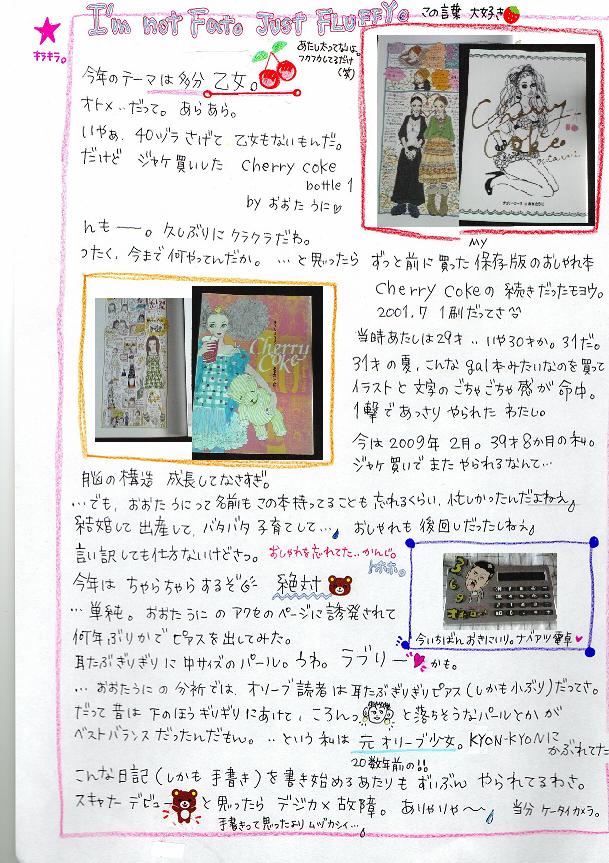 I'm not Fat. Just FLUFFY。 この言葉 大好き
キラキラ。
あたし太ってないよ。
フワフワしてるだけ
(笑)
今年のテーマは多分 乙女。
オトメ‥だって。あらあら。
いやぁ、40ヅラさげて 乙女もないもんだ。
だけど ジャケ買いした cherry coke
bottle 1
by おおた うに
んも ー。久しぶりに クラクラだわ。
ったく、今まで何やってんだか。…と思ったら
Cherry
Coke
MY
ずっと前に買った保存版のおしゃれ本
cherry cokeの 続きだったモヨウ。
2001.7 1刷だってさ
当時あたしは29才‥いや30才か。31だ。
31才の夏、こんな gal本みたいなのを買って
イラストと文字のごちゃごちゃ感が命中。
1撃であっさり やられた わたし。
今は2009年 2月。39才8か月の私。
ジャケ買いで またやられるなんて…
Cherry
Coke
脳の構造 成長してなさすぎ。
…でも、おおたうにって名前もこの本持ってることも忘れるくらい、忙しかったんだよねえ。
結婚して出産して、バタバタ子育てして…、おしゃれも後回しだったしねえ。
言い訳しても仕方ないけどさっ。おしゃれを忘れてた‥かんじ。
トホホ。
今年は ちゃらちゃらするぞ 絶対
…単純。おおたうにの アクセのページに誘発されて
何年ぶりかで ピアスを出してみた。
今いちばんおきにいり。ナベアツ電卓
耳たぶぎりぎりに中サイズのパール。うわ。ラブリー かも。
…おおたうにの分析では、オリーブ読者は耳たぶぎりぎりピアス(しかも小ぶり)だってさ。
だって昔は下のほうギリギリにあけて、ころんっ と落ちそうなパールとか が
ベストバランスだったんだもん。‥という私は 元オリーブ少女。KYON-KYONに
かぶれてた
20数年前の!!
こんな日記(しかも手書き)を書き始めるあたりも ずいぶん やられてるわさ。
スキャナーデビュー と思ったら デジカメ 故障。ありゃりゃ〜 当分 ケータイカメラ。
手書きって思ったよりムヅカシイ…